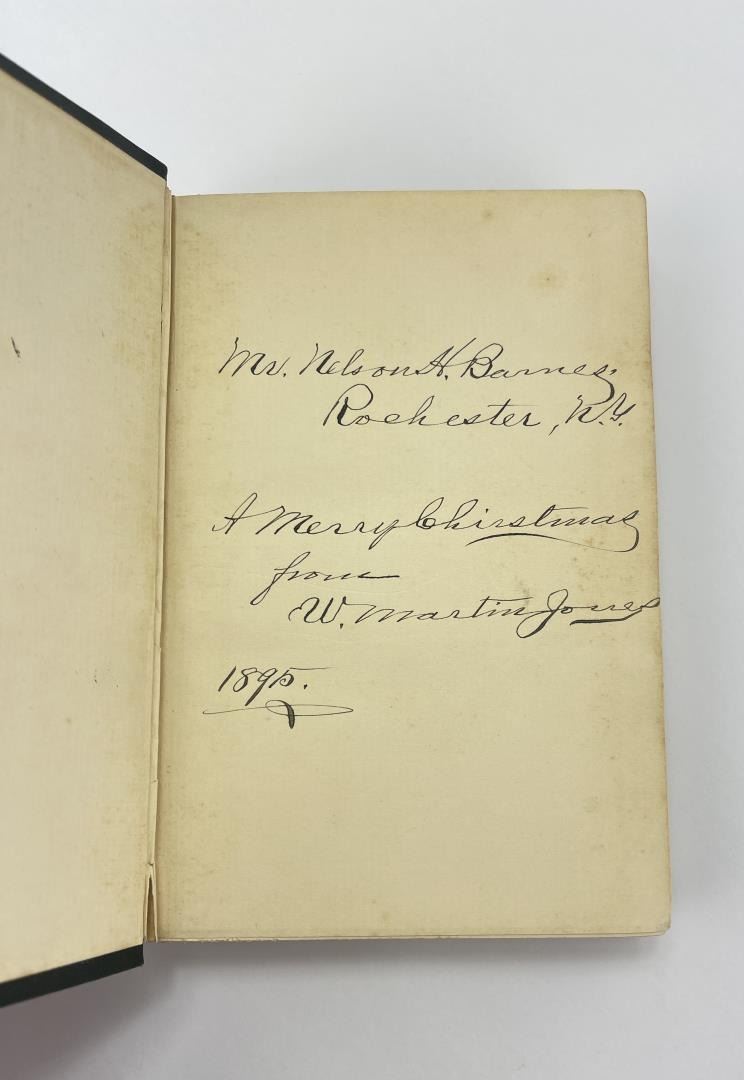 Mr. Nelson H. Barnes,
Rochester, N.Y.
A Merry Chirstmas
from
W. Martin Jones
1895.